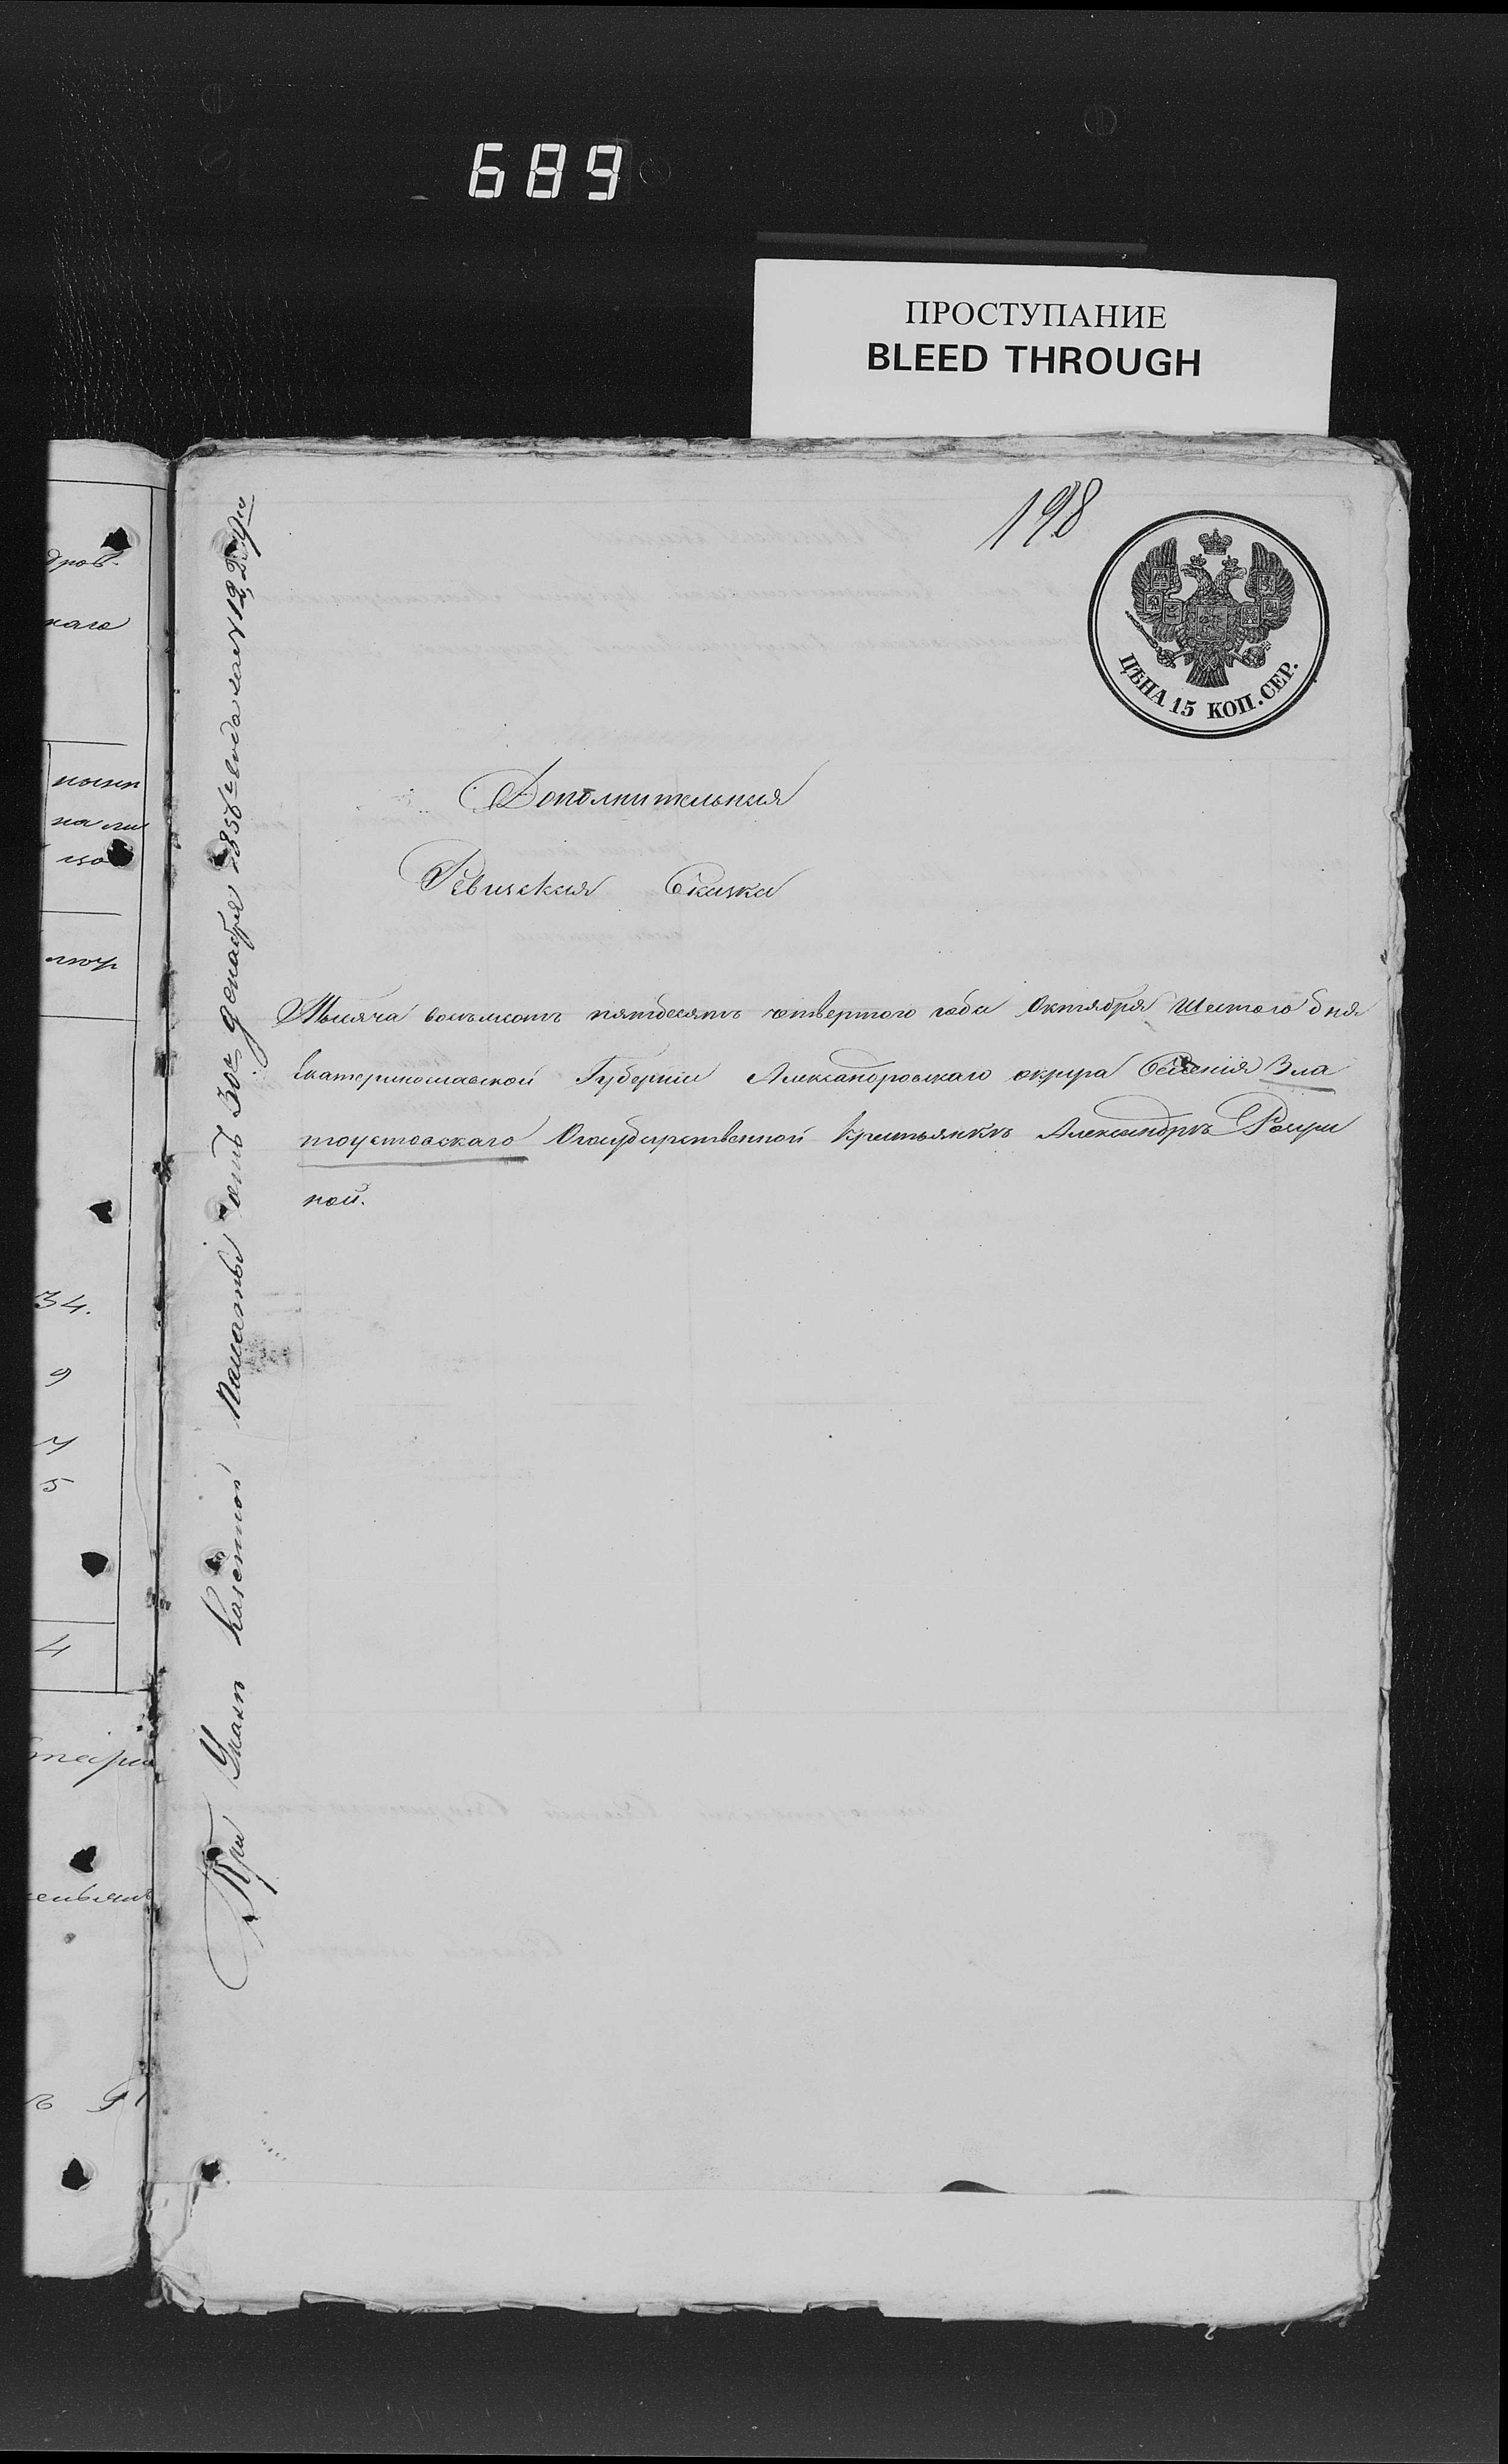 689
ПРОСТУПАНИЕ
BLEED THROUGH
198
ЦѢНА 15 КОП. СЕР.
Дополнительная
Ревизская Сказка
Тысяча восемьсотъ пятьдесятъ четвертого года Октября Шестого дня
Екатеринославской Губерніи Александровскаго округа Селенія Зла
тоустовскаго О государственной крестьянкѣ Александрѣ
ной.
При Указѣ Казенной Палаты отъ 30го декабря 1856го года за №
дров.
каго
34.
9
4
5
4